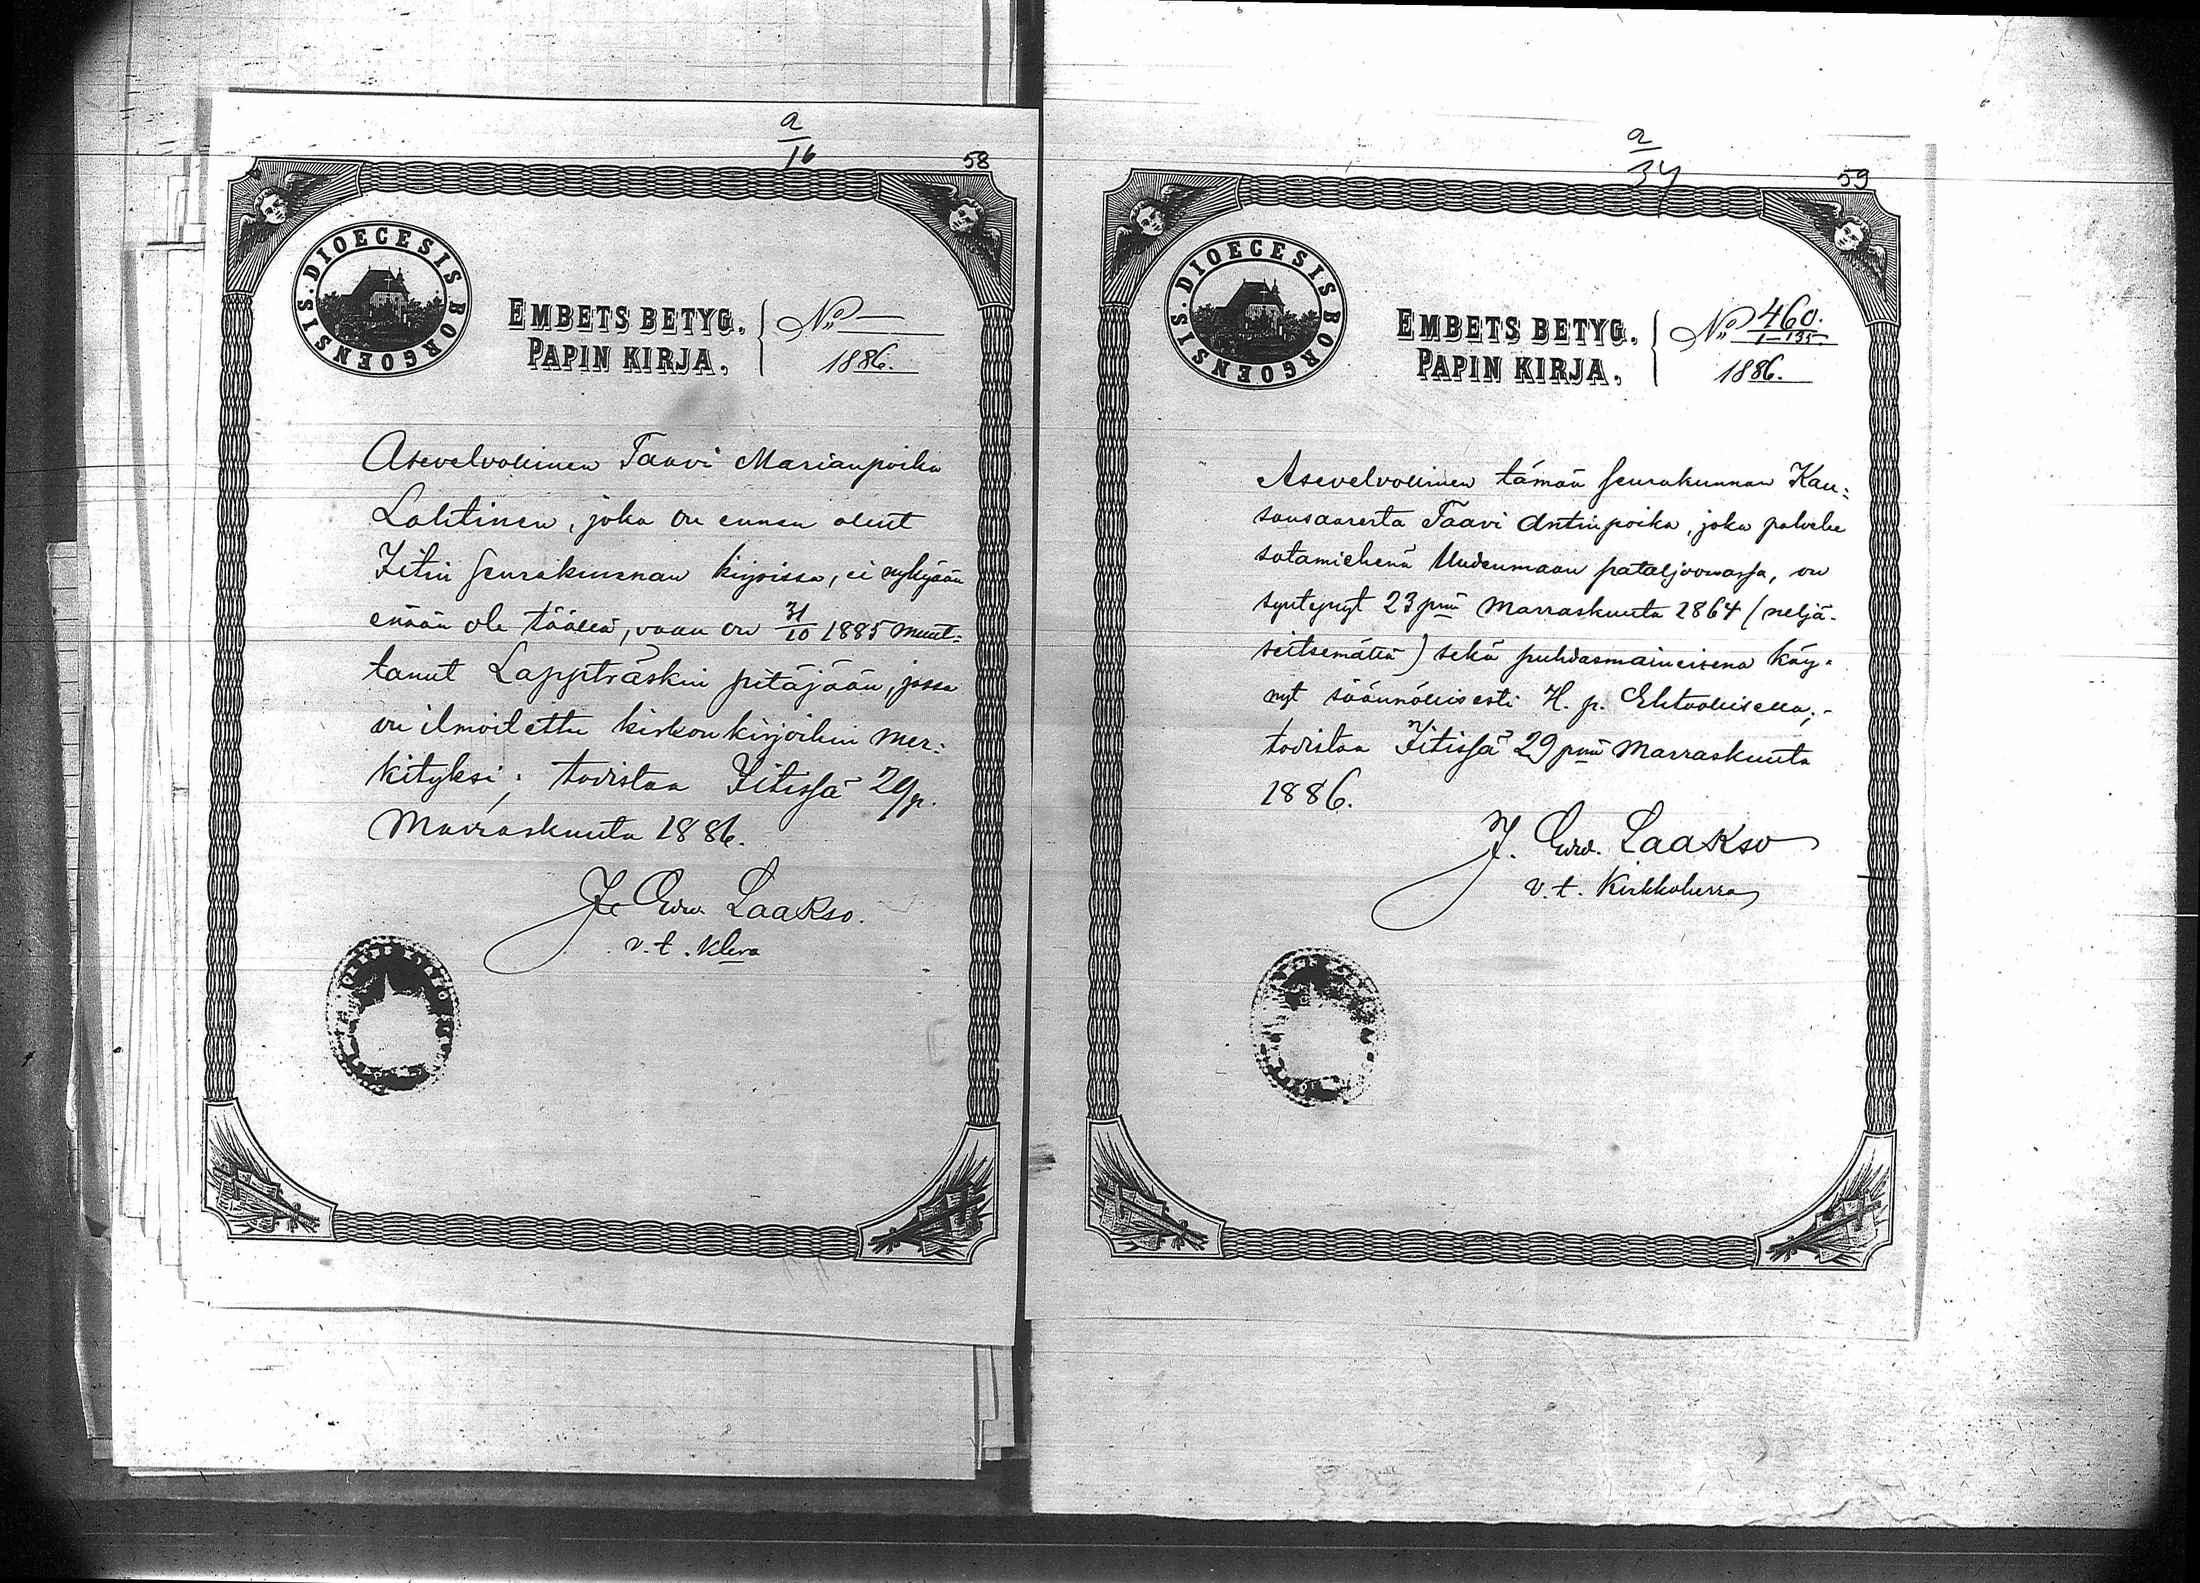 a
16
58
DIOECESIS BORGOENSIS.
EMBETS BETYG.
PAPIN KIRJA.
No —
1886.
Asevelvollinen Taavi Marianpoika
Lahtinen, joka on ennen ollut
Iitin seurakunnan kirjoissa, ei nykyään
enään ole täällä, vaan on 31/10 1885 muut-
tanut Lappträskin pitäjään, jossa
on ilmoitettu kirkonkirjoihin mer-
kityksi; todistaa Iitissä 29 p.
Marraskuuta 1886.
J. Edw. Laakso.
v. t. Klrra
a
34
59
DIOECESIS BORGOENSIS.
EMBETS BETYG.
PAPIN KIRJA.
No 460.
I–135
1886.
Asevelvollinen tämän seurakunnan Kau-
sansaaresta Taavi Antinpoika, joka palvelee
sotamiehenä Uudenmaan pataljoonassa, on
syntynyt 23 pnä Marraskuuta 1864 (neljä-
seitsemättä) sekä puhdasmaineisena käy-
nyt säännöllisesti H. p. Ehtoollisella; -
todistaa Iitissä 29 pnä Marraskuuta
1886.
J. Edw. Laakso
v. t. Kirkkoherra